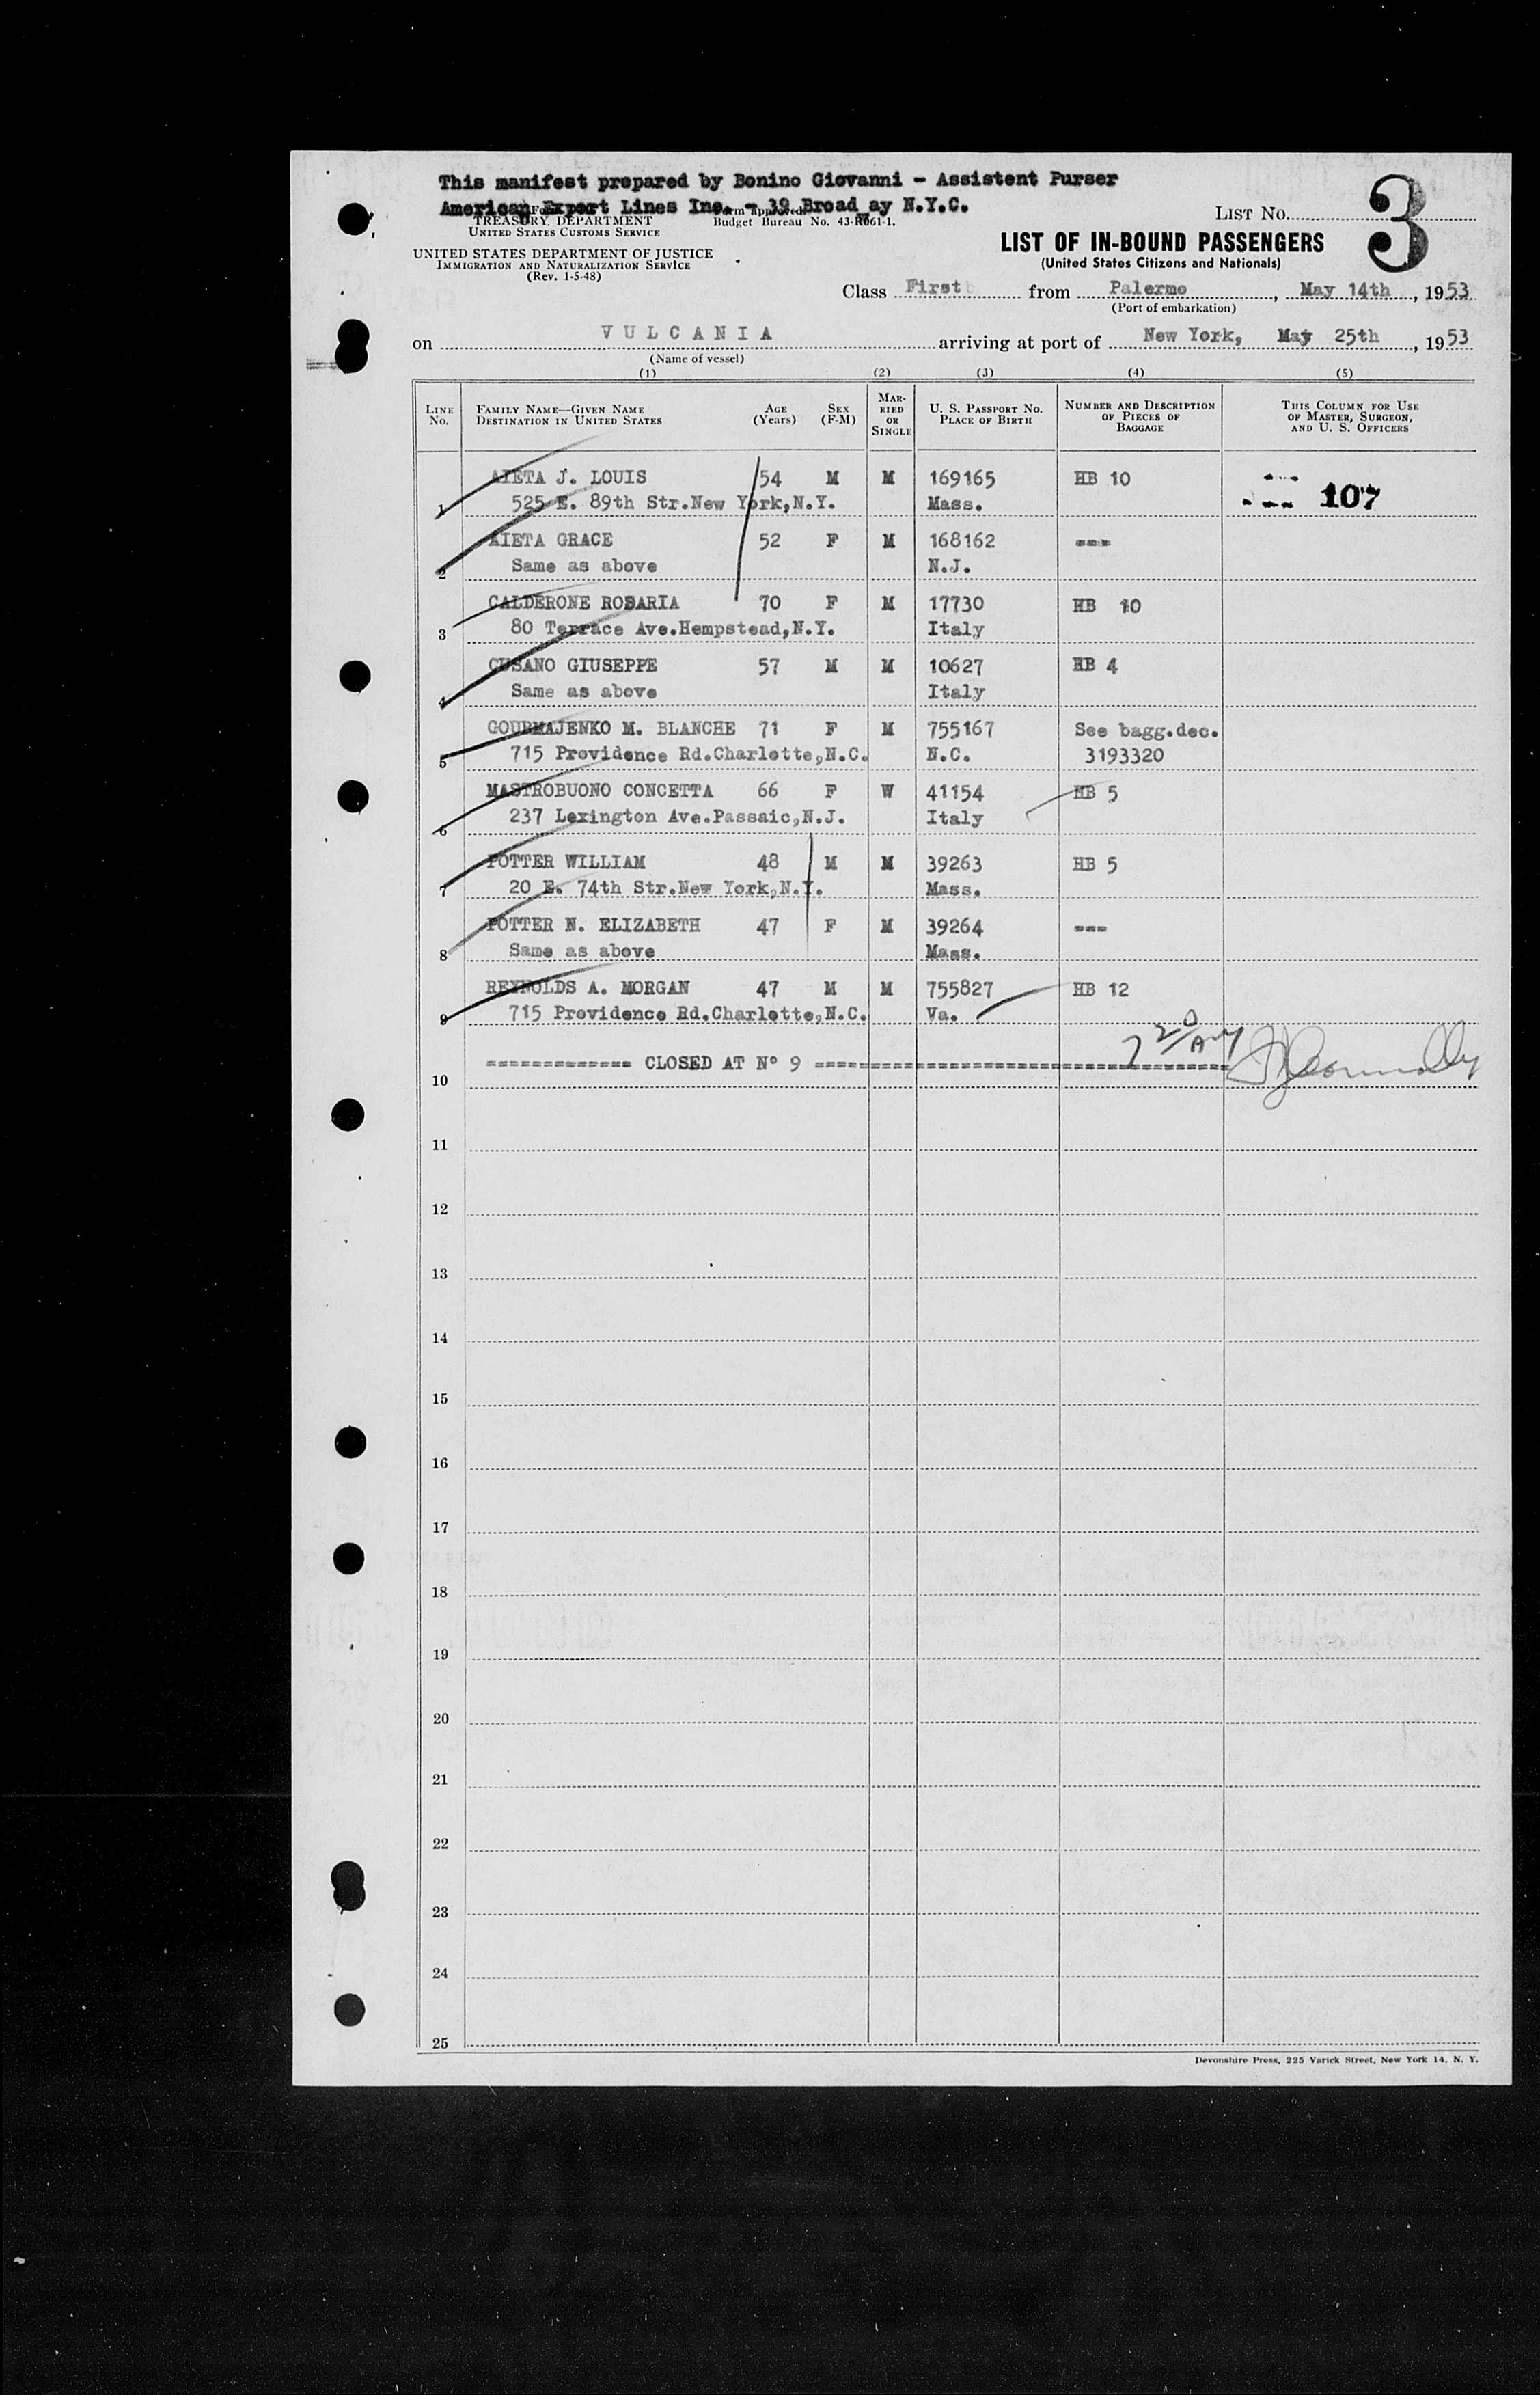 This manifest prepared by Bonino Giovanni - Assistent Purser
American Export Lines Inc. - 39 Broad ay N.Y.C.
TREASURY DEPARTMENT
UNITED STATES CUSTOMS SERVICE
Budget Bureau No. 43-R061-1.
UNITED STATES DEPARTMENT OF JUSTICE
IMMIGRATION AND NATURALIZATION SERVICE
(Rev. 1-5-48)
LIST NO. 3
LIST OF IN-BOUND PASSENGERS
(United States Citizens and Nationals)
Class First from Palermo, May 14th, 1953
(Port of embarkation)
on VULCANIA arriving at port of New York, May 25th, 1953
(Name of vessel)
(1) (2) (3) (4) (5)
LINE No. FAMILY NAME—GIVEN NAME DESTINATION IN UNITED STATES AGE (Years) SEX (F-M) MARRIED OR SINGLE U. S. PASSPORT NO. PLACE OF BIRTH NUMBER AND DESCRIPTION OF PIECES OF BAGGAGE THIS COLUMN FOR USE OF MASTER, SURGEON, AND U. S. OFFICERS
AIETA J. LOUIS 54 M M 169165 HB 10
1 525 E. 89th Str.New York,N.Y. Mass. 107
AIETA GRACE 52 F M 168162 ---
2 Same as above N.J.
CALDERONE ROSARIA 70 F M 17730 HB 10
3 80 Terrace Ave.Hempstead,N.Y. Italy
CUSANO GIUSEPPE 57 M M 10627 HB 4
4 Same as above Italy
GOURMAJENKO M. BLANCHE 71 F M 755167 See bagg.dec.
5 715 Providence Rd.Charlotte,N.C. N.C. 3193320
MASTROBUONO CONCETTA 66 F W 41154 HB 5
6 237 Lexington Ave.Passaic,N.J. Italy
POTTER WILLIAM 48 M M 39263 HB 5
7 20 E. 74th Str.New York,N.Y. Mass.
POTTER N. ELIZABETH 47 F M 39264 ---
8 Same as above Mass.
REYNOLDS A. MORGAN 47 M M 755827 HB 12
9 715 Providence Rd.Charlotte,N.C. Va.
============= CLOSED AT N° 9 =====================================
10
11
12
13
14
15
16
17
18
19
20
21
22
23
24
25
Devonshire Press, 225 Varick Street, New York 14, N. Y.